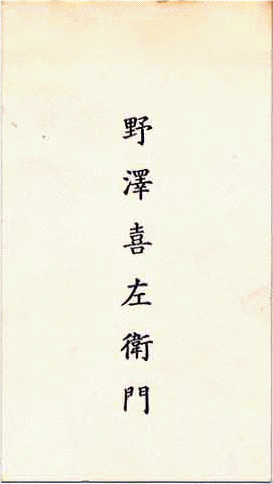 野澤喜左衛門